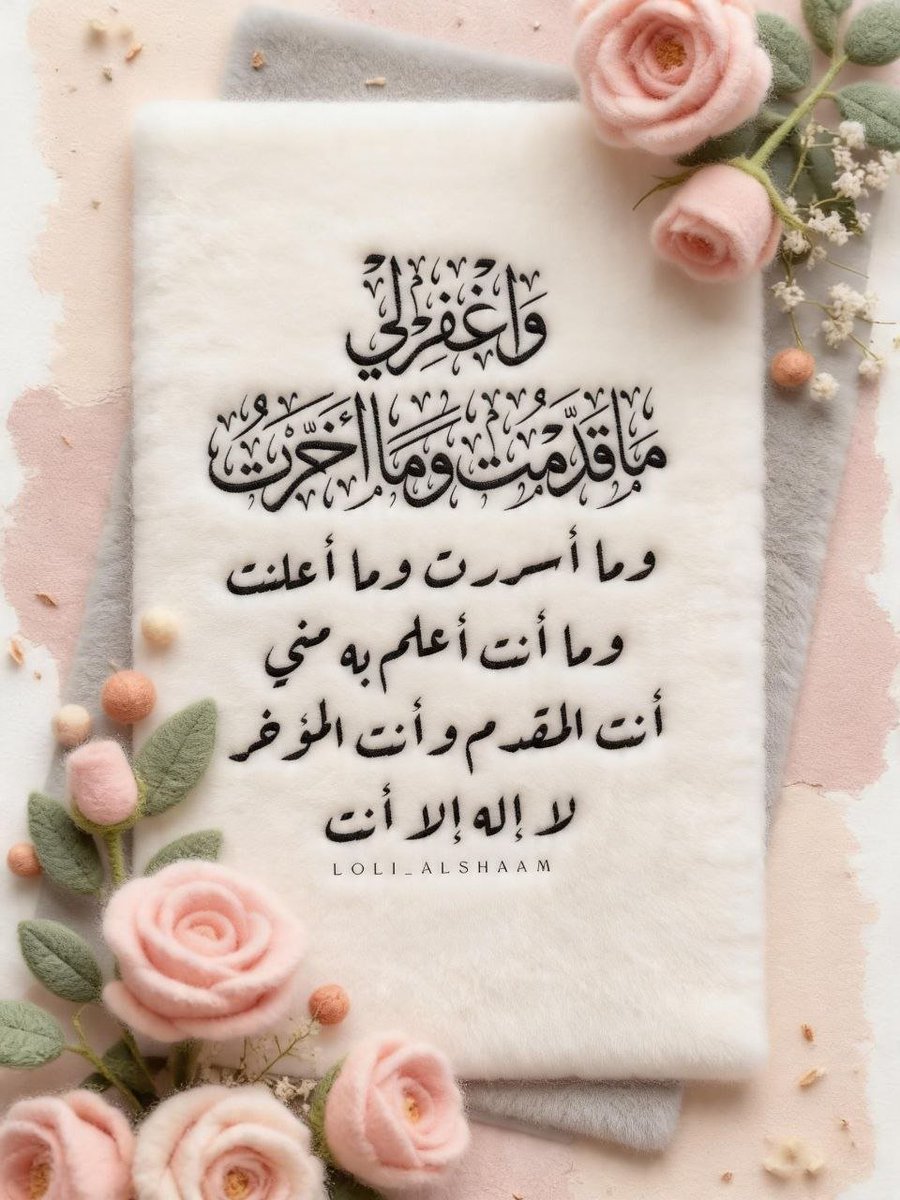 وَاغْفِرْ لِي
مَا قَدَّمْتُ وَمَا أَخَّرْتُ
وما أسررت وما أعلنت
وما أنت أعلم به مني
أنت المقدم وأنت المؤخر
لا إله إلا أنت
LOLI_ALSHAAM